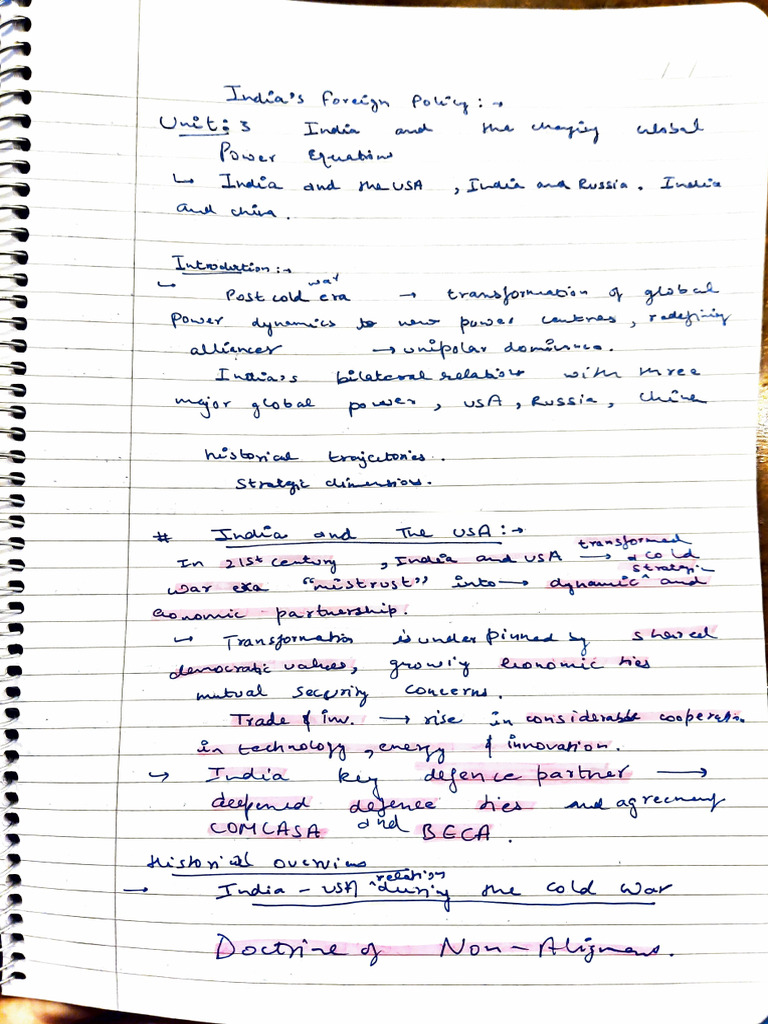 India's Foreign Policy : →
Unit: 3 India and the changing Global
Power Equations
↳ India and the USA , India and Russia . India
and China .
Introduction : →
↳ Post cold war era → transformation of global
Power dynamics to new power centres , redefining
alliances → unipolar dominance .
India's bilateral relations with three
major global power , USA , Russia , China
historical trajectories .
Strategic dimensions .
# India and The USA : →
In 21st century , India and USA → transformed cold
war era "mistrust" into → dynamic strategic and
economic partnership .
↳ Transformation is underpinned by shared
democratic values , growing Economic ties
mutual security concerns .
Trade & inv. → rise in considerable cooperation
in technology , energy & innovation .
↳ India key defence partner →
deepened defence ties and agreement
COMCASA and BECA .
Historical overview
→ India - USA relation during the cold war
Doctrine of Non-Alignment .